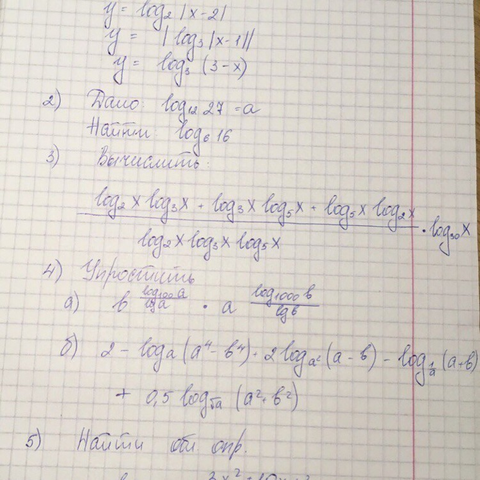 y = log₂ |x-2|
y = | log₃ |x-1||
y = log₃ (3-x)
2) Дано: log₁₂ 27 = a
Найти: log₆ 16
3) Вычислить:
(log₂x log₃x + log₃x log₅x + log₅x log₂x) / (log₂x log₃x log₅x) · log₃₀x
4) Упростить
а) b^(log₁₀₀a / lg a) · a^(log₁₀₀₀b / lg b)
б) 2 - logₐ(a⁴-b⁴) + 2 log_a²(a-b) - log_1/a (a+b)
+ 0,5 log_√a (a²+b²)
5) Найти обл. опр.